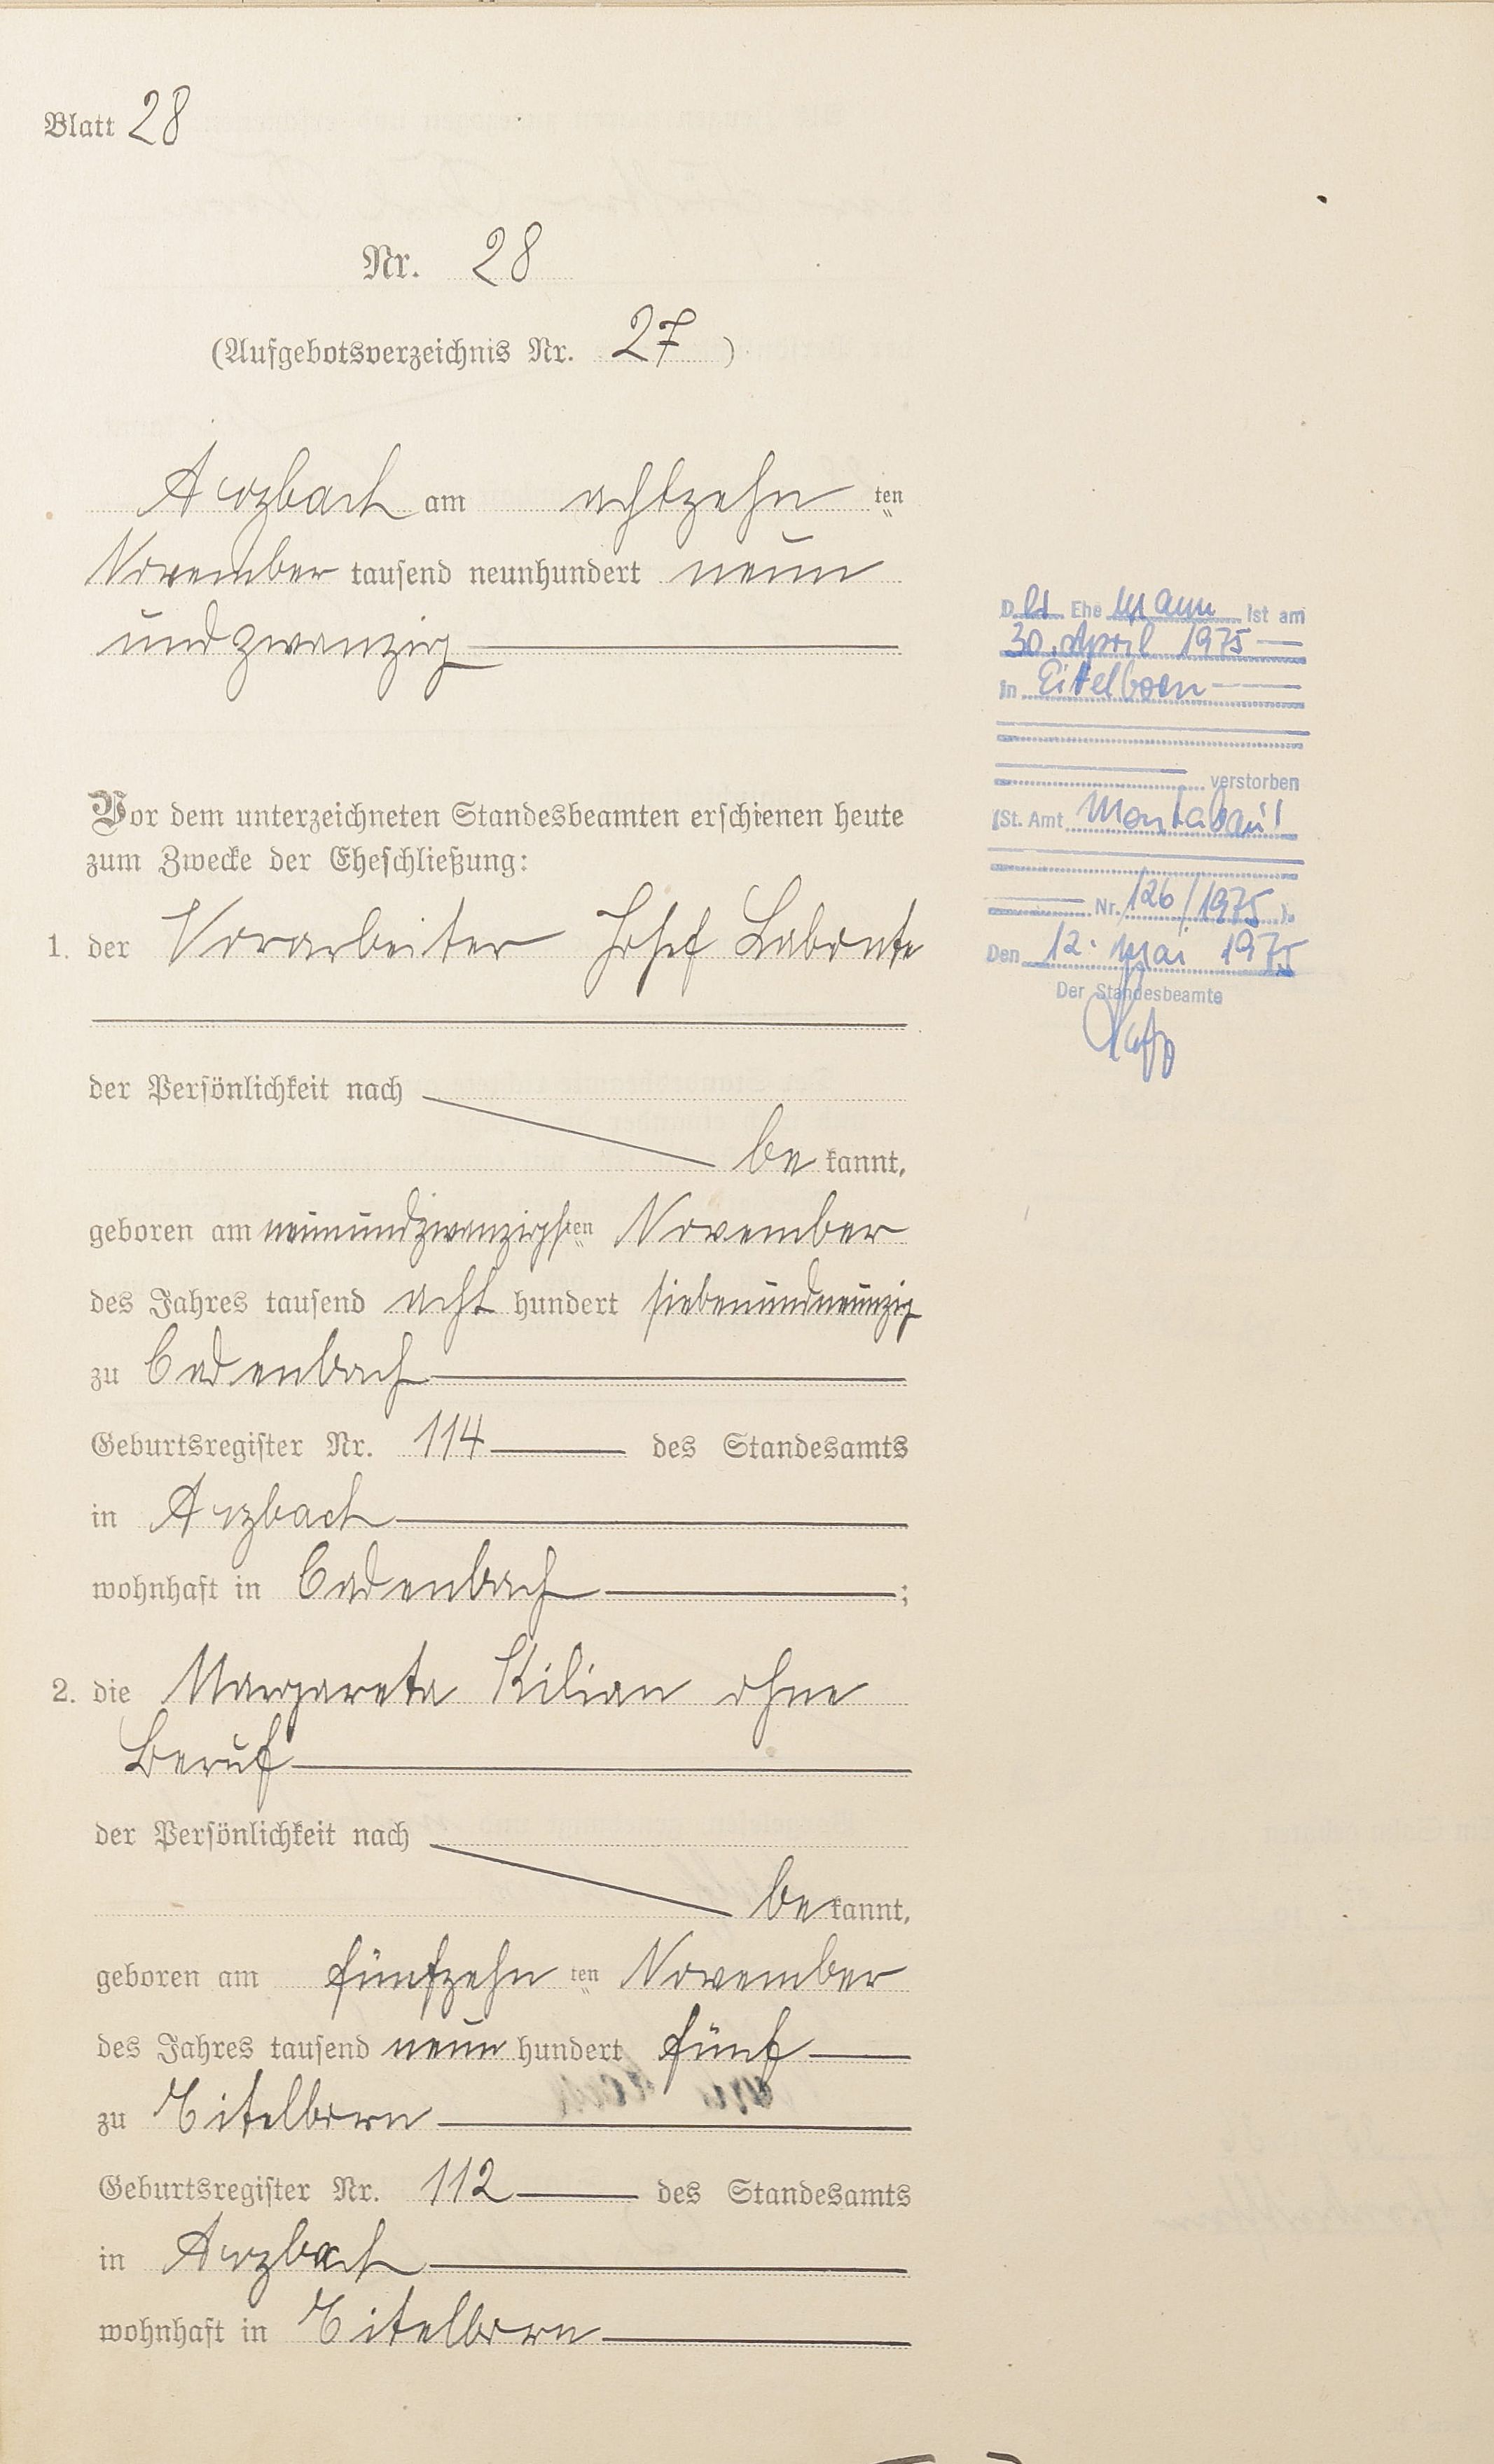 Blatt 28
Nr. 28
(Aufgebotsverzeichnis Nr. 27 )
Arzbach am achtzehn ten
November tausend neunhundert neun
und zwanzig
Vor dem unterzeichneten Standesbeamten erschienen heute
zum Zwecke der Eheschließung:
1. der Vorarbeiter Josef Labonte
der Persönlichkeit nach
be kannt,
geboren am neunundzwanzigsten November
des Jahres tausend acht hundert siebenundneunzig
zu Cadenbach
Geburtsregister Nr. 114 des Standesamts
in Arzbach
wohnhaft in Cadenbach ;
2. die Margareta Kilian ohne
Beruf
der Persönlichkeit nach
be kannt,
geboren am fünfzehn ten November
des Jahres tausend neun hundert fünf
zu Eitelborn
Geburtsregister Nr. 112 des Standesamts
in Arzbach
wohnhaft in Eitelborn
Der Ehe Mann ist am
30. April 1975
in Eitelborn
verstorben
(St. Amt Montabaur
Nr. 126/1975 ).
Den 12. Mai 1975
Der Standesbeamte